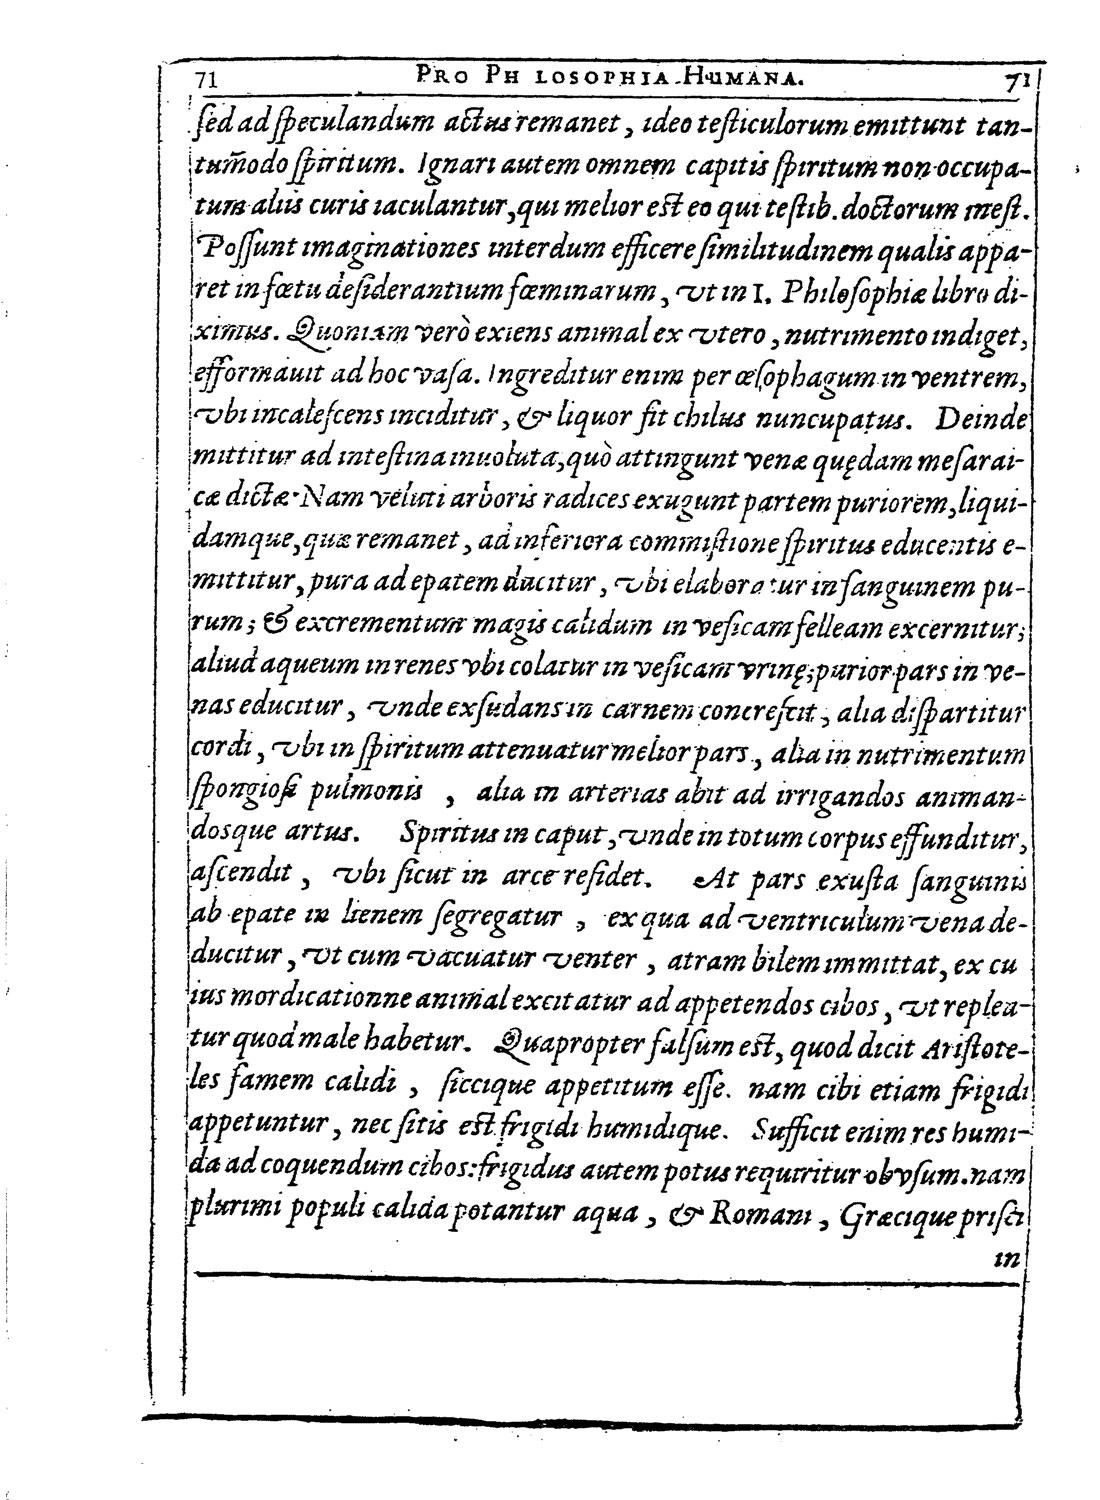 71 PRO PH LOSOPHIA HUMANA. 71
sed ad speculandum actus remanet, ideo testiculorum emittunt tan-
tum̃odo spiritum. Ignari autem omnem capitis spiritum non occupa-
tum aliis curis iaculantur, qui melior est eo qui testib. doctorum inest.
Possunt imaginationes interdum efficere similitudinem qualis appa-
ret in fœtu desiderantium fœminarum, vt in I. Philosophiæ libro di-
ximus. Quoniam verò exiens animal ex vtero, nutrimento indiget,
efformauit ad hoc vasa. Ingreditur enim per œsophagum in ventrem,
vbi incalescens inciditur, & liquor fit chilus nuncupatus. Deinde
mittitur ad intestina inuoluta, quò attingunt venæ quędam mesarai-
cæ dictæ. Nam veluti arboris radices exugunt partem puriorem, liqui-
damque, quæ remanet, ad inferiora commistione spiritus educentis e-
mittitur, pura ad epatem ducitur, vbi elaboratur in sanguinem pu-
rum; & excrementum magis calidum in vesicam felleam excernitur;
aliud aqueum in renes vbi colatur in vesicam vrinę; purior pars in ve-
nas educitur, vnde exsudans in carnem concrescit, alia dispartitur
cordi, vbi in spiritum attenuatur melior pars, alia in nutrimentum
spongiosi pulmonis, alia in arterias abit ad irrigandos animan-
dosque artus. Spiritus in caput, vnde in totum corpus effunditur,
ascendit, vbi sicut in arce residet. At pars exusta sanguinis
ab epate in lienem segregatur, ex qua ad ventriculum vena de-
ducitur, vt cum vacuatur venter, atram bilem immittat, ex cu
ius mordicationne animal excitatur ad appetendos cibos, vt replea-
tur quod male habetur. Quapropter falsum est, quod dicit Aristote-
les famem calidi, siccique appetitum esse. nam cibi etiam frigidi
appetuntur, nec sitis est frigidi humidique. Sufficit enim res humi-
da ad coquendum cibos: frigidus autem potus requiritur ob vsum. nam
plurimi populi calida potantur aqua, & Romani, Græcique prisci
in